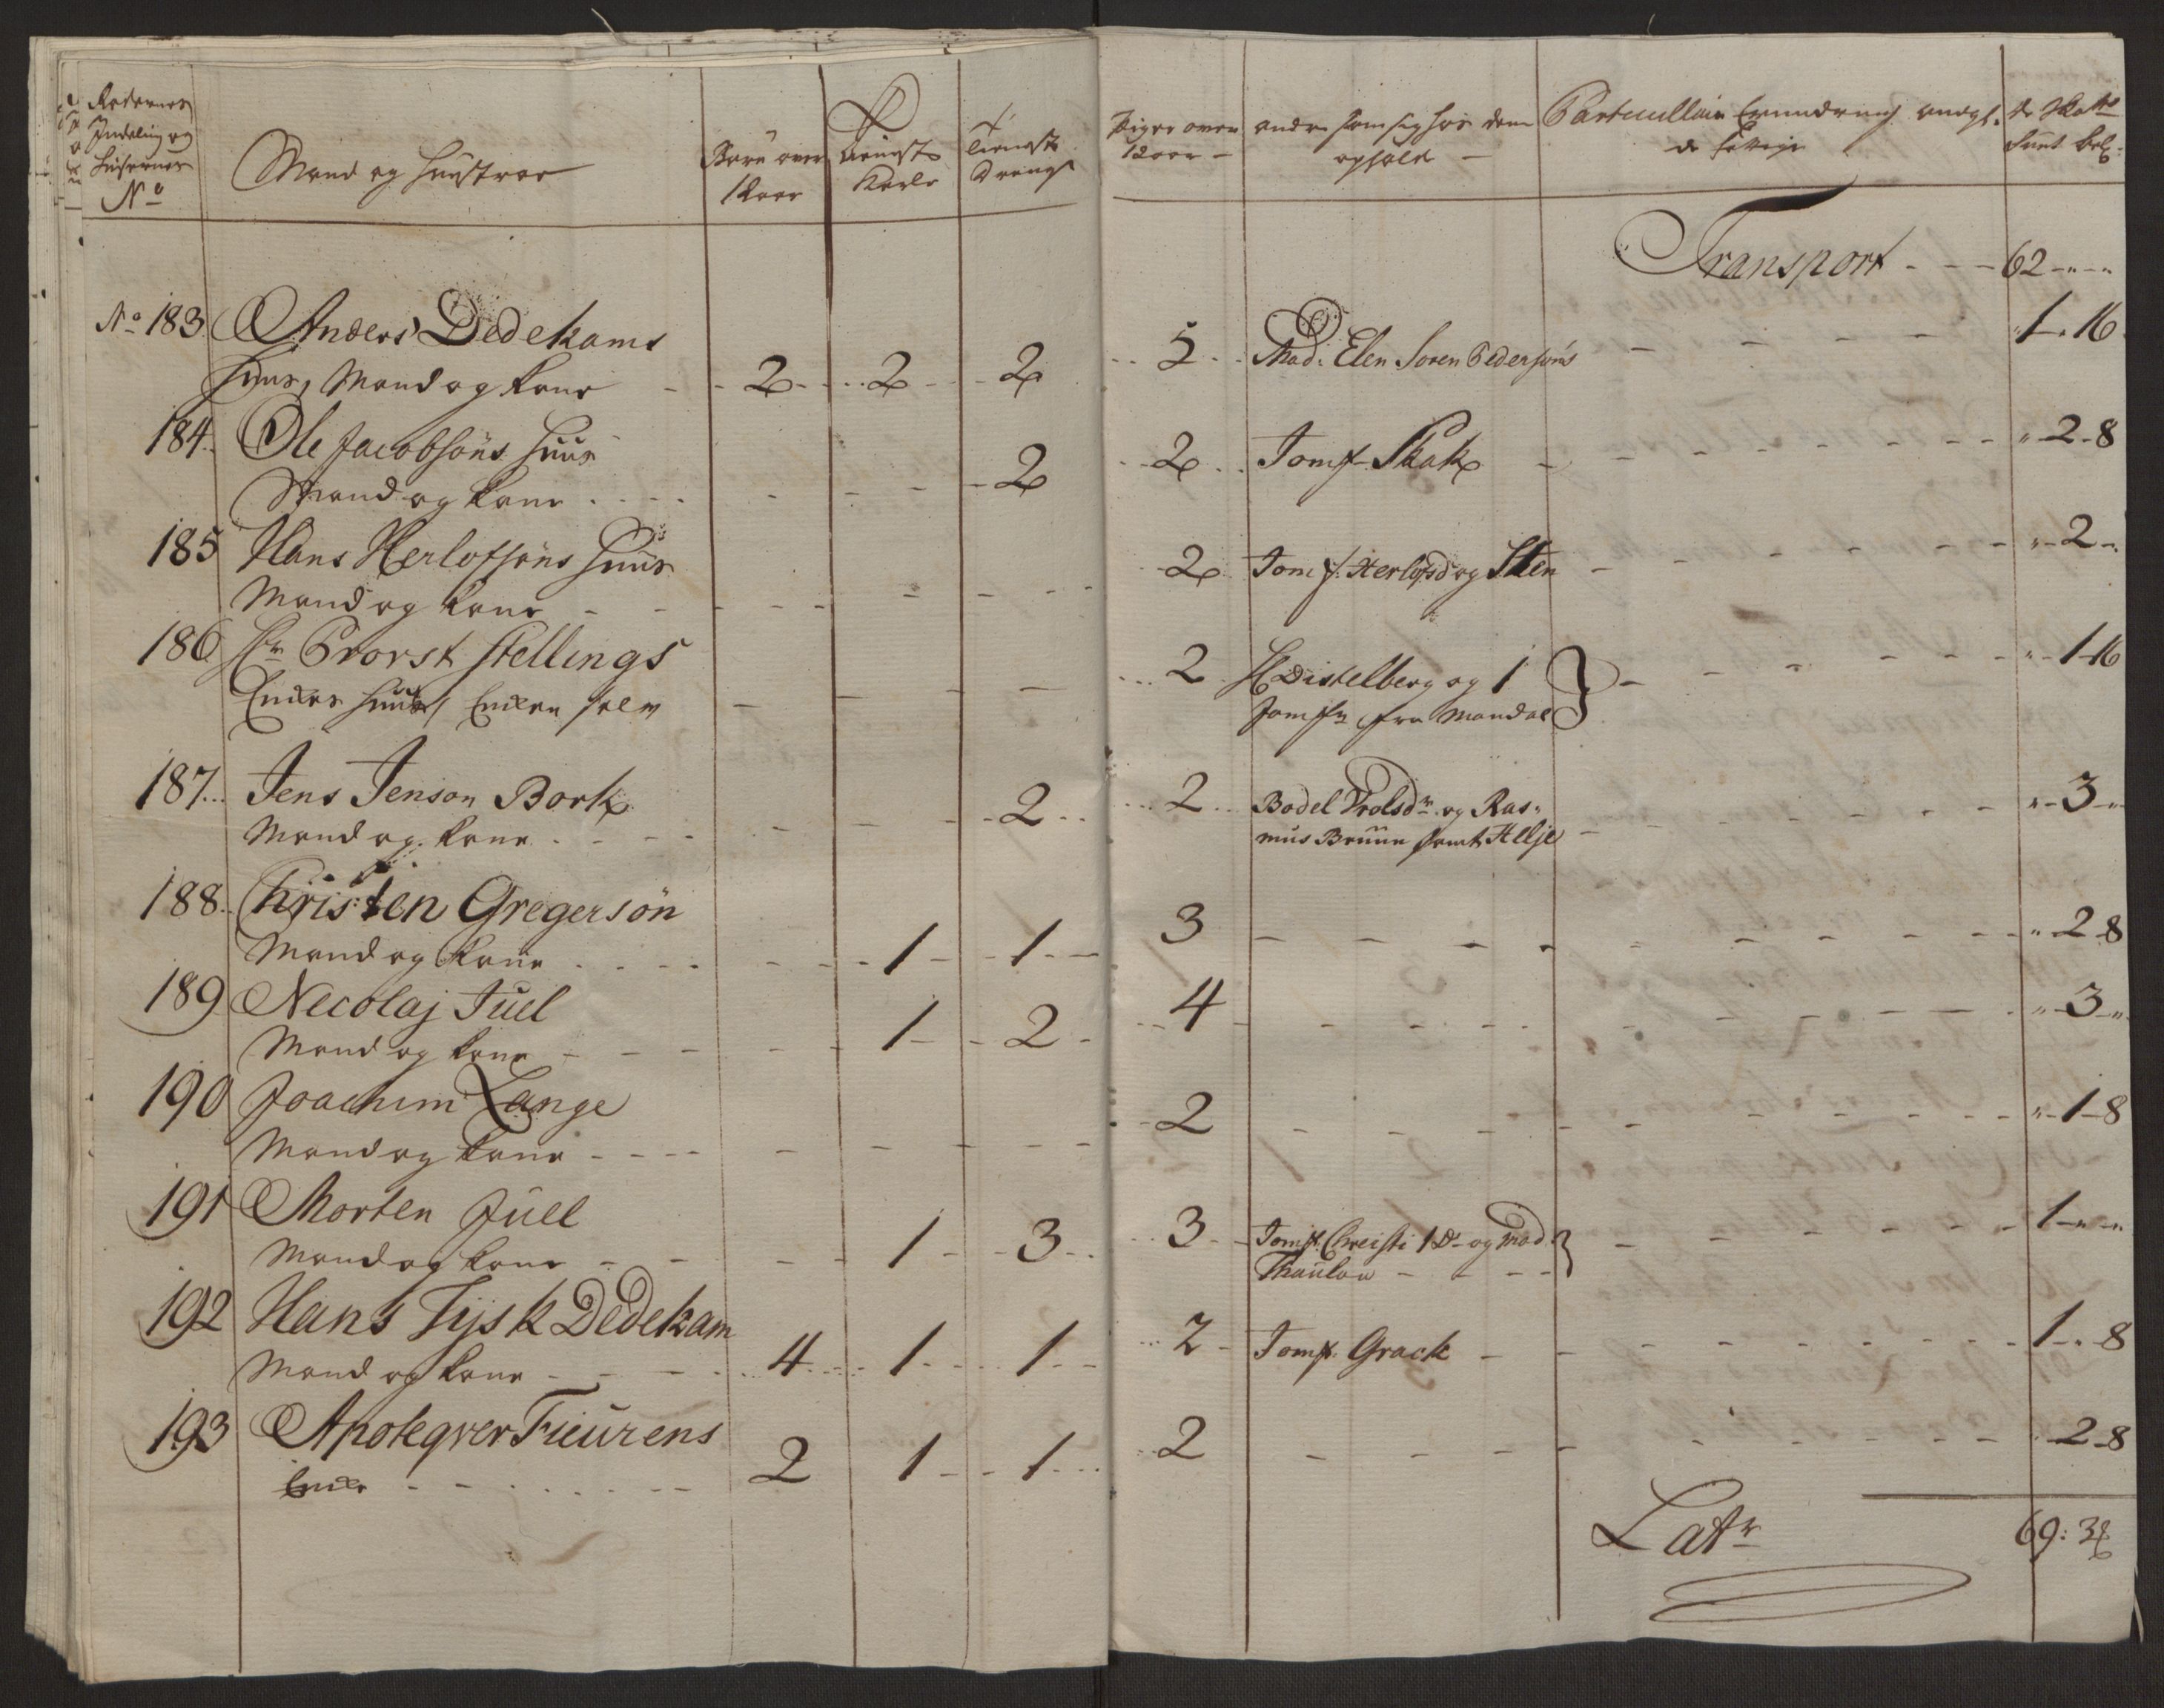 Rodernes
Jndeling og
Huusernes
No
Mand og Huustroe
Børn over
12 aar
Tienest
Karle
Tieneste
Drenge
Piger over
12 aar -
andre som sig hos dem
opholde -
Particullair Erindring angl.
de fattige
de Skatt
Summ bel:
Transport - - - 62 - " - "
No 183 Anders Dedekams
Huus, Mand og Kone - - 2 - - 2 - - 2 - - 5 - - Mad: Elen Soren Pedersøns - - - - 1 - " 16
184. Ole Jacobsøns Huus
Mand og Kone . . . . - - - - 2 - - 2 - - Jomf Skak - - - - " - 2 - 8
185 Hans Herlofsøns Huus
Mand og Kone - - - - - - - - 2 Jomf. Herlofsd og Sten - - - - " - 2 - "
186 Hr Provst Stellings
Enkes Huus, Enken selv - - - - - 2 H Distelberg og 1 - - - - " - 1 - 16
Jomfr fra Mandal
187 Jens Jenson Bork
Mand og Kone . - - - - - - 2 - - 2 - - Bodel Trolsdr og Ras- - - - - " - 3 - "
mus Bruun samt Hellje
188. Christen Gregersøn
Mand og Kone . . . . - - - 1 - - 1 - - 3 - - - - " - 2 - 8
189 Necolaj Juel
Mand og Kone - - - - - 1 - - 2 - - 4 - - - - " - 3 - "
190 Joachim Lange
Mand og Kone - - - - - - - - - 2 - - - - " - 1 - 8
191 Morten Juel
Mand og Kone - - - - 1 - - 3 - - 3 - - Jomf. Christi 1 Dr og Mad - - - - 1 - " - "
Thaulou - - - -
192 Hans Tysk Dedekam
Mand og Kone - - - - 4 - - 1 - - 1 - - 2 - Jomf. Grack - - - - 1 - " 8
193 Apoteqver Fieurens
Enke - - . . . - - 2 1 - - 1 - - 2 - - - - 2 - 8
Latr 69: 3